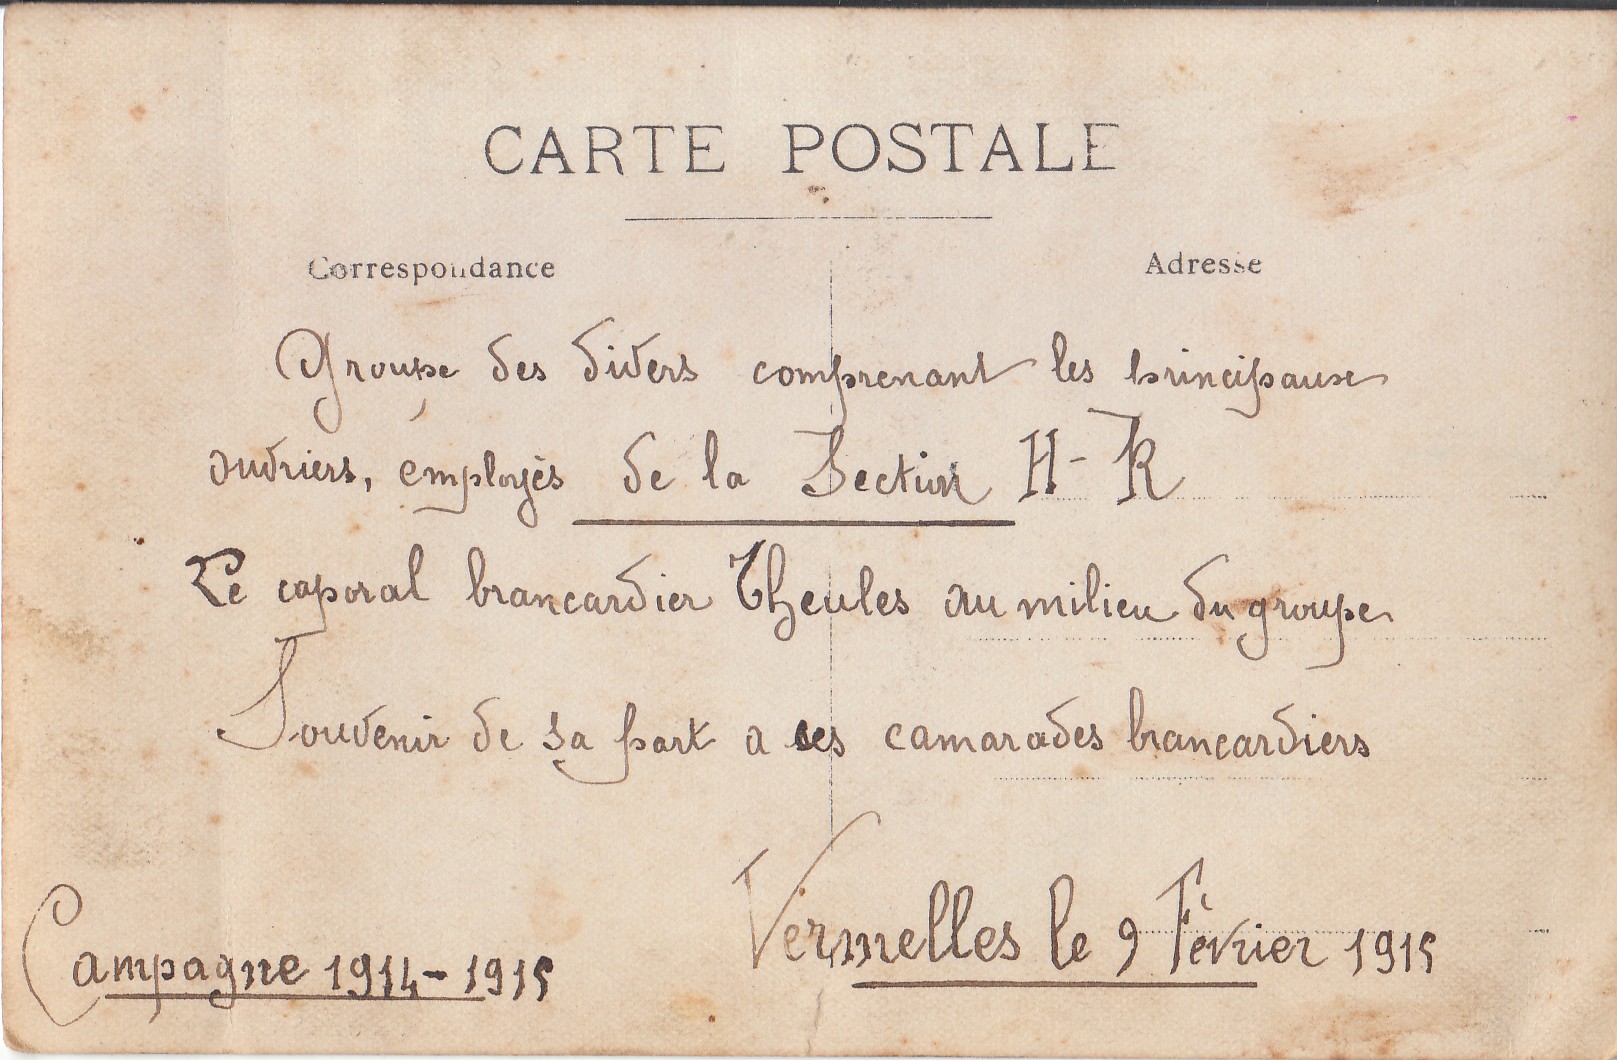 CARTE POSTALE
Correspondance
Adresse
Groupe des divers comprenant les principaux
ouvriers, employés de la Section H-R
Le caporal brancardier Theules au milieu du groupe
Souvenir de sa part a ces camarades brancardiers
Vermelles le 9 Février 1915
Campagne 1914-1915